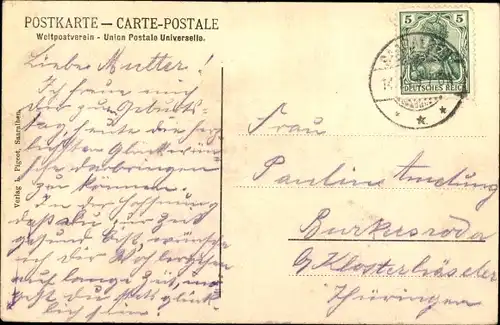 POSTKARTE — CARTE-POSTALE
Weltpostverein - Union Postale Universelle.
5 5
DEUTSCHES REICH
Verlag v. Pigeot, Saaralben.
Liebe Mutter!
Ich freue mich
Dir zum Geburts-
tag, heute die herz-
lichsten Glückwün-
sche darbringen
zu können.
In der Hoffnung
daß du, zur Zeit
gesund bist, wünsche
ich dir Wohlergehen
auf lange Zeit, und
Gott glück-
lich
Frau
Pauline Amelung
Burkersroda
b/ Klosterhäseler
Thüringen